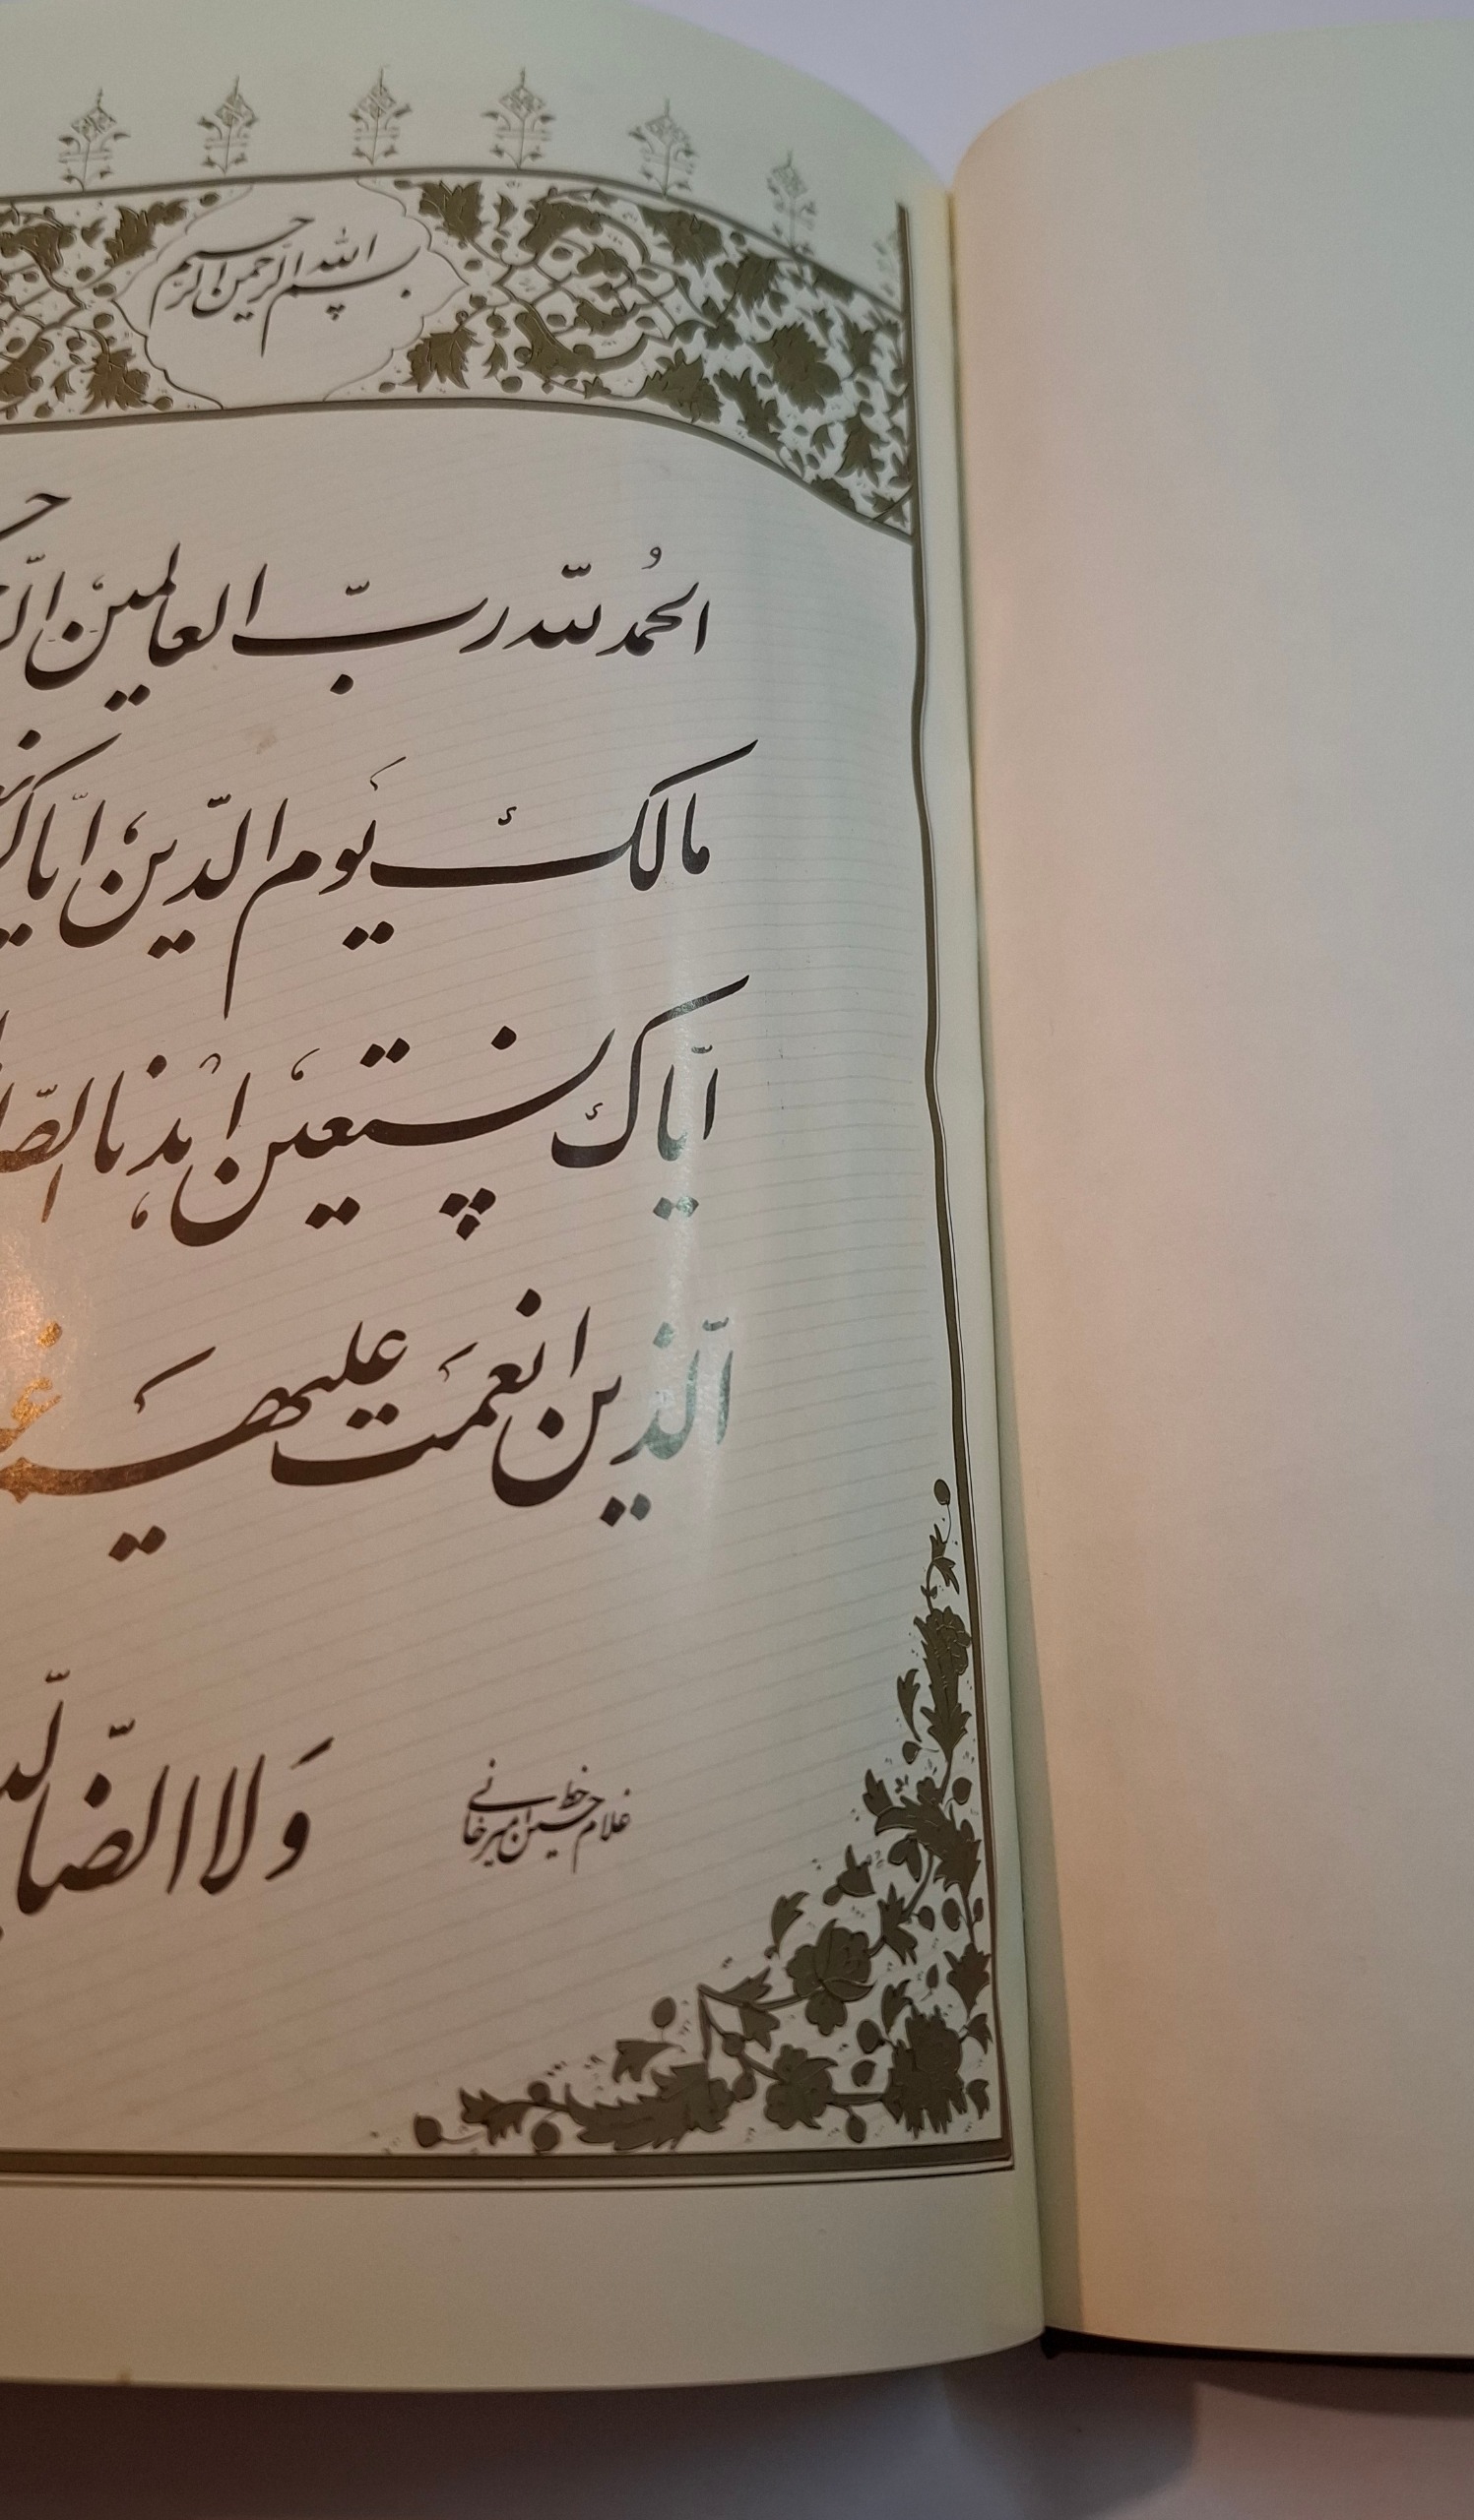 بسم الله الرحمن الرحیم
الحمدُ للّه ربّ العالمین
مالکِ یَوم الدّینِ ایّاک
ایّاکَ نستعینُ اهْدِنا
الّذین انعمتَ علیهِم
وَلا الضّا
غلامحسین امیرخانی